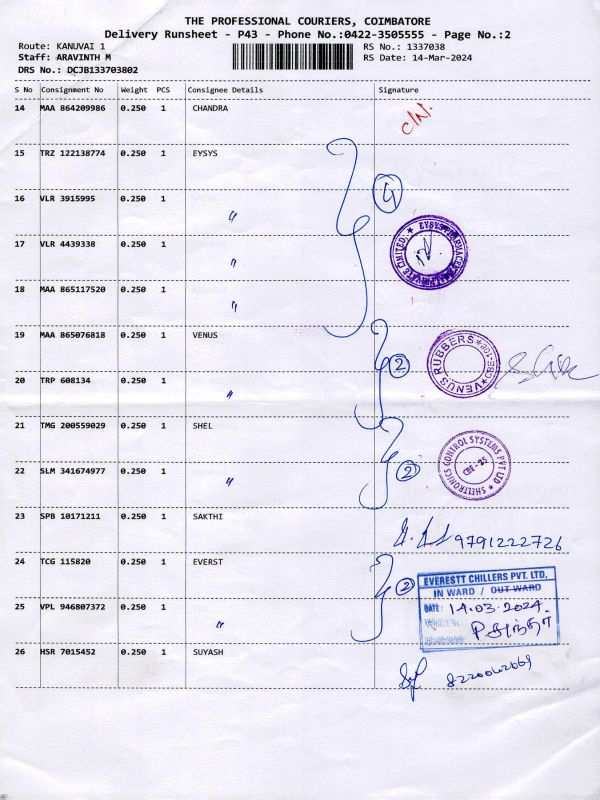 THE PROFESSIONAL COURIERS, COIMBATORE
Delivery Runsheet - P43 - Phone No.:0422-3505555 - Page No.:2
Route: KANUVAI 1
RS No.: 1337038
Staff: ARAVINTH M
RS Date: 14-Mar-2024
DRS No.: DCJB133703802
S No Consignment No Weight PCS Consignee Details Signature
14 MAA 864209986 0.250 1 CHANDRA C/N.
15 TRZ 122138774 0.250 1 EYSYS
4
16 VLR 3915995 0.250 1 〃
17 VLR 4439338 0.250 1 〃
18 MAA 865117520 0.250 1 〃
19 MAA 865076818 0.250 1 VENUS
2 VENUS RUBBERS
20 TRP 608134 0.250 1 〃
21 TMG 200559029 0.250 1 SHEL
2 SHELTRONICS CONTROL SYSTEMS PVT LTD
CBE - 25
22 SLM 341674977 0.250 1 〃
23 SPB 10171211 0.250 1 SAKTHI 9791222726
24 TCG 115820 0.250 1 EVERST
2 EVERESTT CHILLERS PVT. LTD.
IN WARD / OUT WARD
DATE: 14.03.2024
25 VPL 946807372 0.250 1 〃
26 HSR 7015452 0.250 1 SUYASH